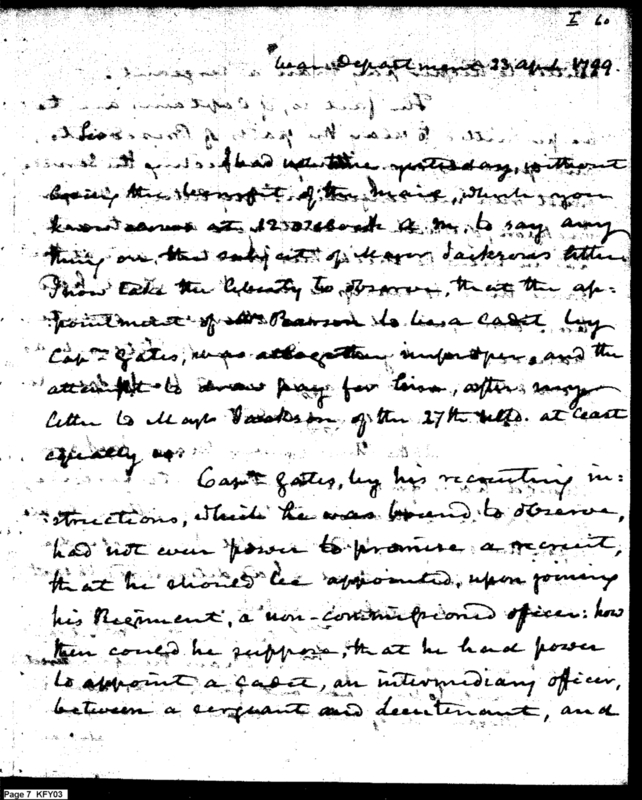 I 60
War Department 23 April 1799.
Sir
I had not time yesterday, without
losing the benefit of the Mail, which you
know closes at 12 oClock A M. to say any
thing on the subject of Major Jacksons letter
I now take the liberty to observe, that the ap=
pointment of Mr Pearson to be a Cadet by
Capn Gates, was altogether improper, and the
attempt to draw pay for him, after my
letter to Major Jackson of the 27th ulto. at least
equally so.
Capn Gates, by his recruiting in=
structions, which he was bound to observe,
had not even power to promise a recruit,
that he should be appointed, upon joining
his Regiment, a non-commissioned officer: how
then could he suppose, that he had power
to appoint a cadet, an intermediary officer,
between a serguant and Lieutenant, and
Page 7 KFY03